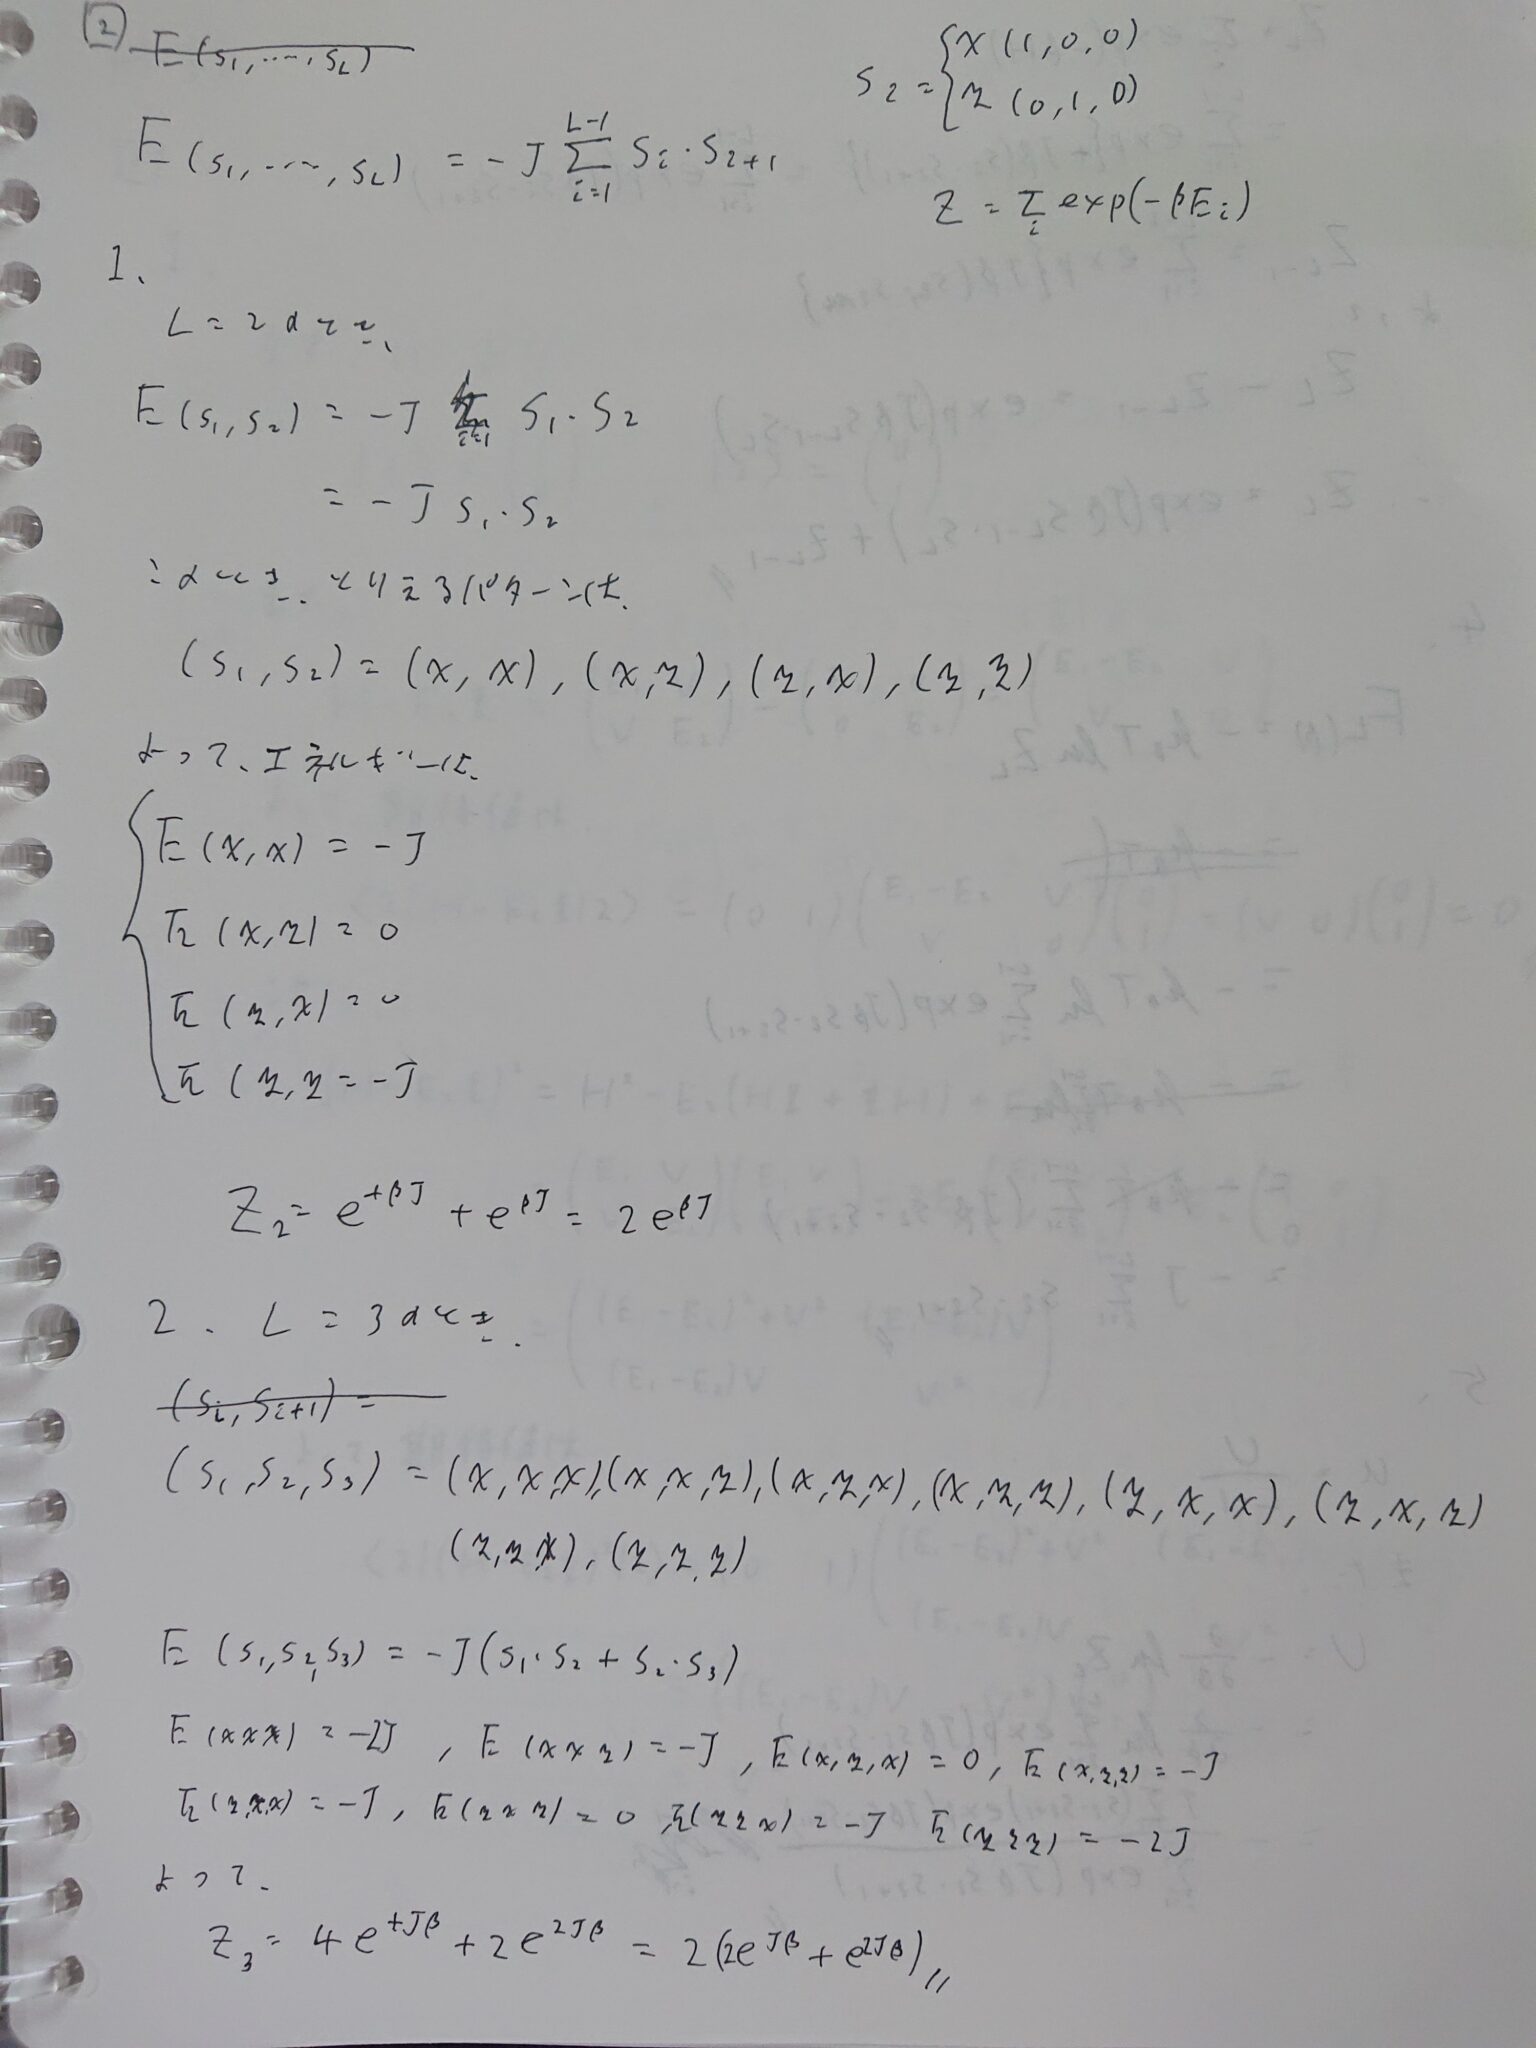 [2] E(s₁, ..., s_L)
s₂ = { x (1, 0, 0)
z (0, 1, 0)
E(s₁, ---, s_L) = -J Σ_{i=1}^{L-1} s_i · s_{2+1}
Z = Σ_i exp(-βE_i)
1.
L = 2 のとき、
E(s₁, s₂) = -J s₁ · s₂
= -J s₁ · s₂
このとき、とりえるパターンは、
(s₁, s₂) = (x, x), (x, z), (z, x), (z, z)
よって、エネルギーは、
E(x, x) = -J
E(x, z) = 0
E(z, x) = 0
E(z, z = -J
Z₂ = e^{+βJ} + e^{βJ} = 2e^{βJ}
2. L = 3 のとき、
(s_i, s_{i+1}) =
(s₁, s₂, s₃) = (x, x, x), (x, x, z), (x, z, x), (x, z, z), (z, x, x), (z, x, z)
(z, z, x), (z, z, z)
E(s₁, s₂, s₃) = -J(s₁ · s₂ + s₂ · s₃)
E(x x x) = -2J, E(x x z) = -J, E(x, z, x) = 0, E(x, z, z) = -J
E(z, x, x) = -J, E(z x z) = 0 E(z z x) = -J E(z z z) = -2J
よって、
Z₃ = 4e^{+Jβ} + 2e^{2Jβ} = 2(2e^{Jβ} + e^{2Jβ})〃